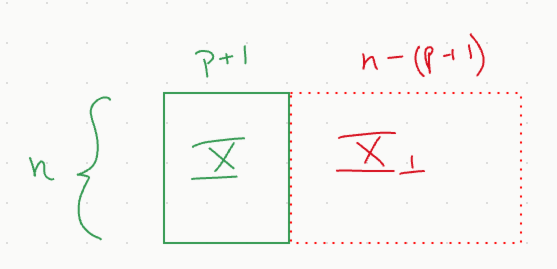 p+1
n-(p+1)
n
X
X⊥